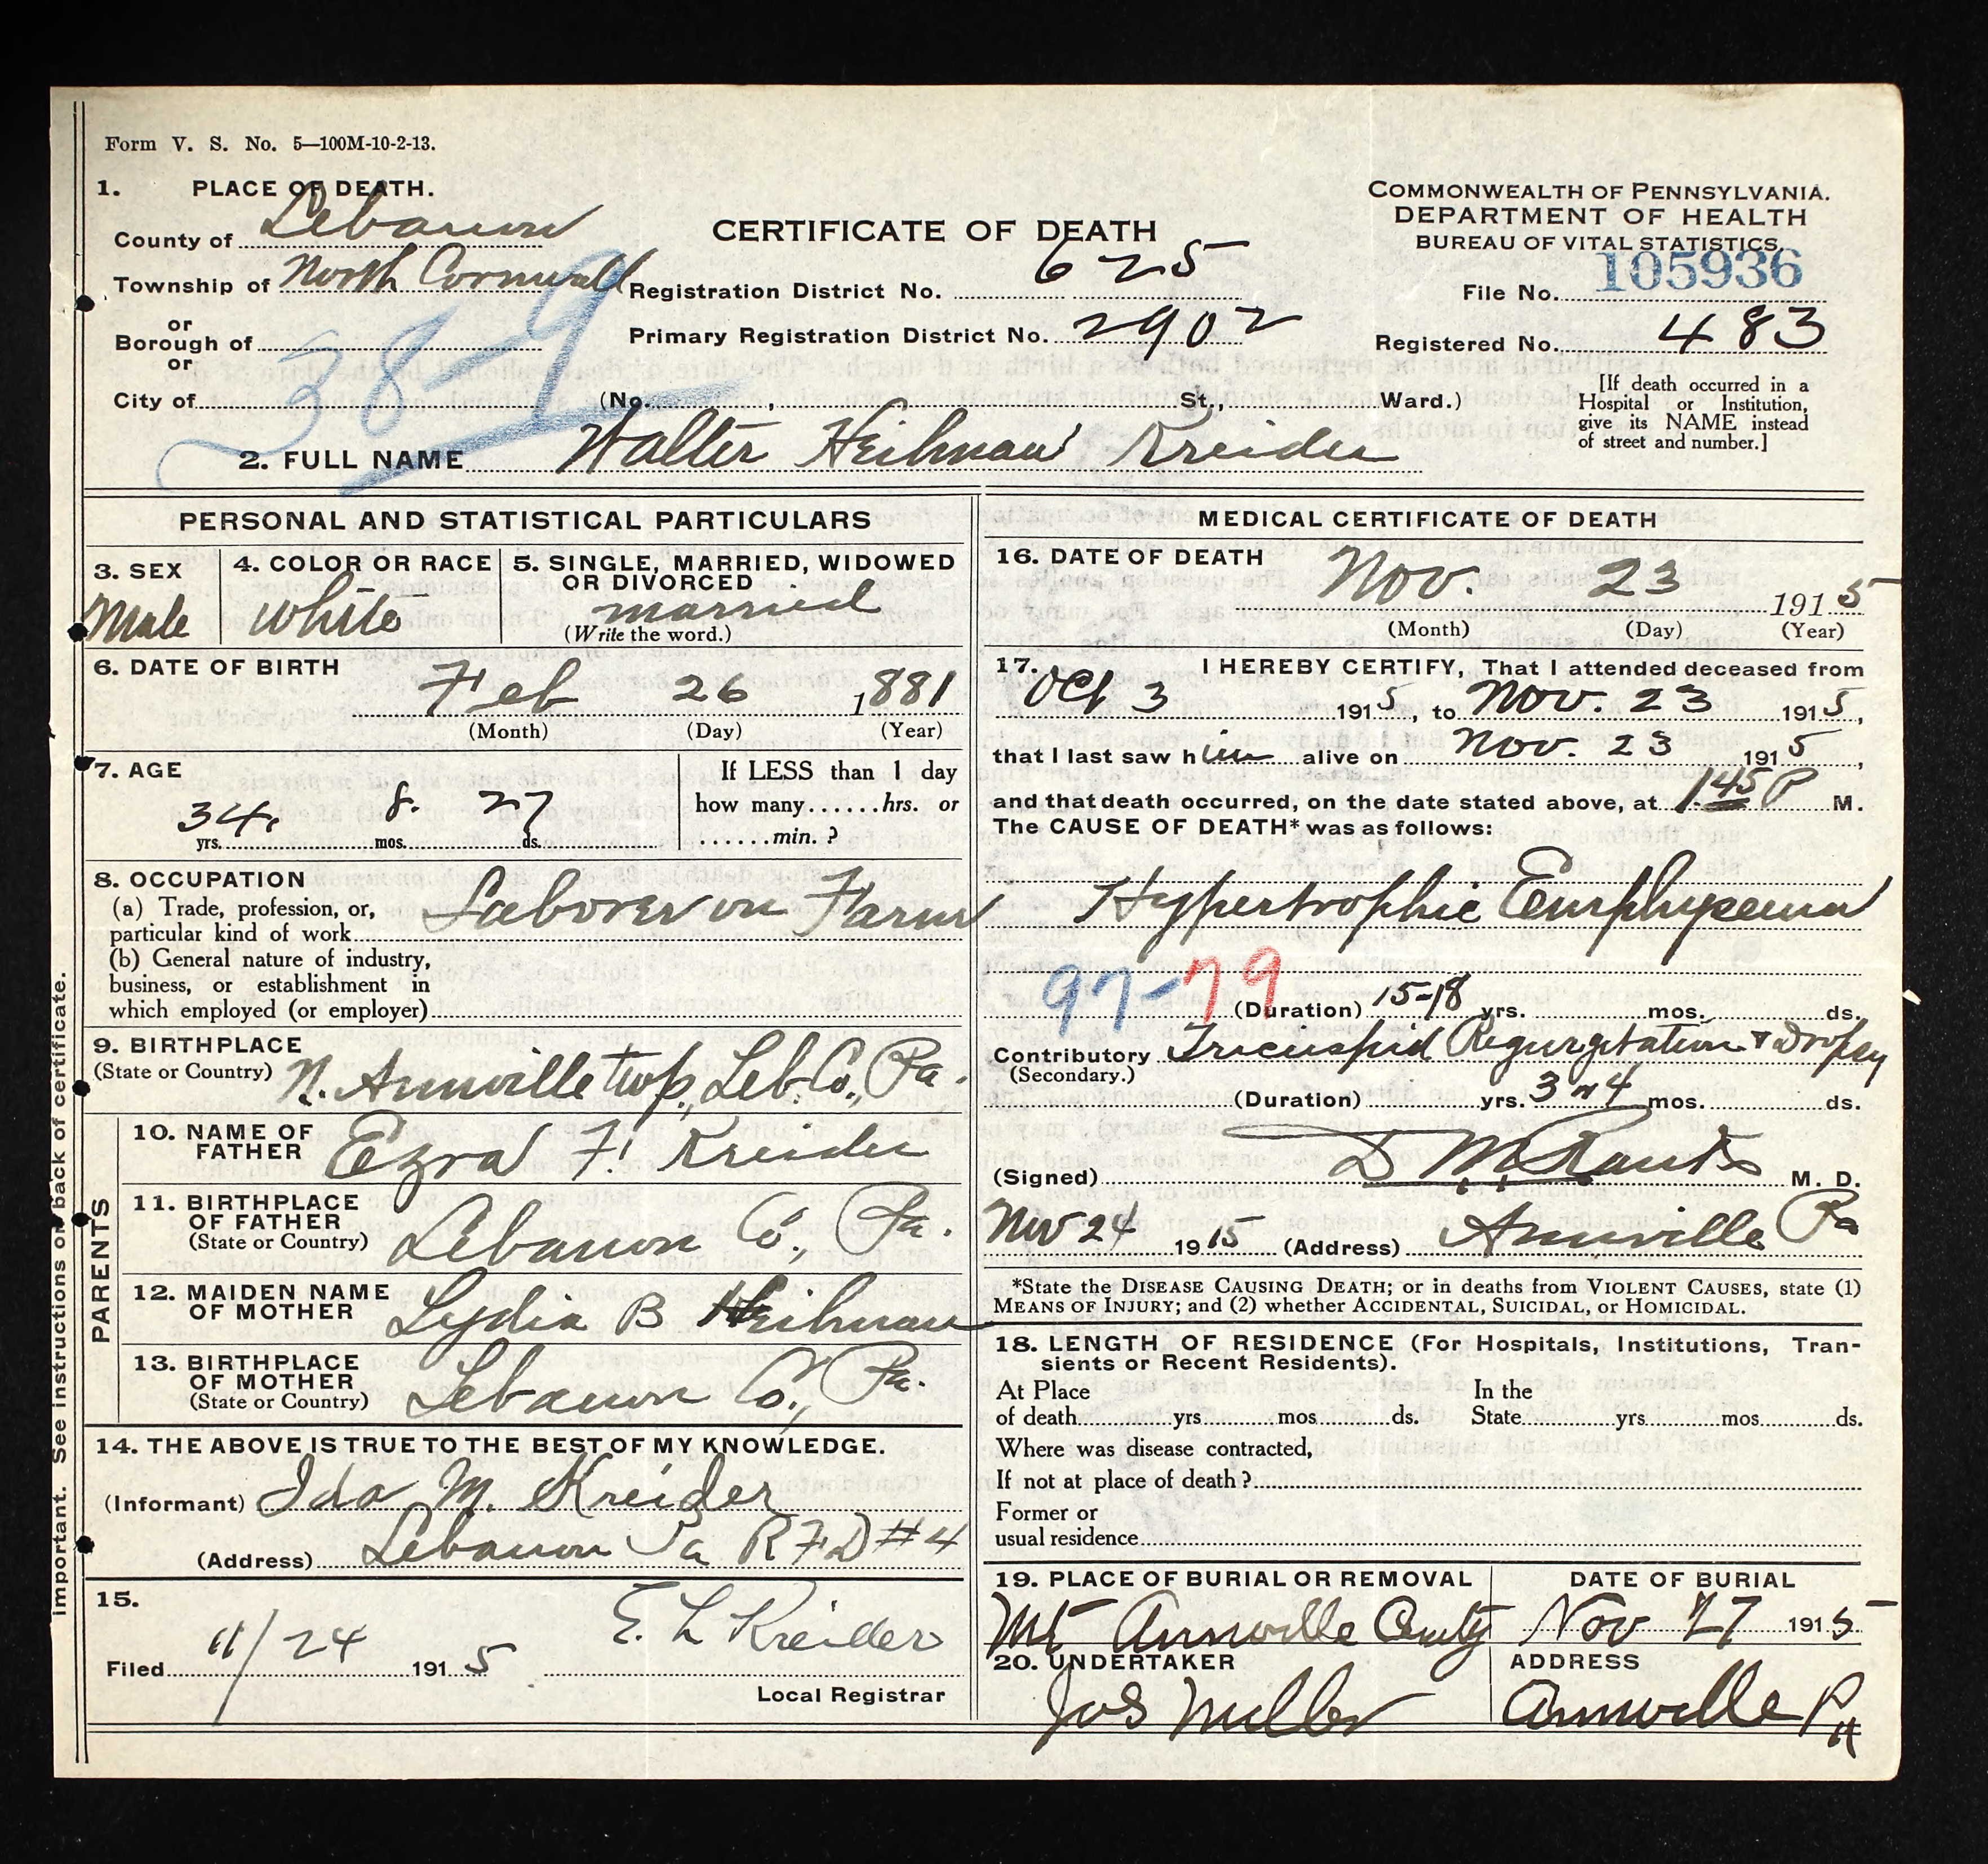 Form V. S. No. 5—100M-10-2-13.
1. PLACE OF DEATH.
County of Lebanon
Township of North Cornwall
or
Borough of
or
City of
38-9
CERTIFICATE OF DEATH
Registration District No. 625
Primary Registration District No. 2902
(No. , St., Ward.)
COMMONWEALTH OF PENNSYLVANIA.
DEPARTMENT OF HEALTH
BUREAU OF VITAL STATISTICS.
File No. 105936
Registered No. 483
[If death occurred in a
Hospital or Institution,
give its NAME instead
of street and number.]
2. FULL NAME Walter Heilman Kreider
PERSONAL AND STATISTICAL PARTICULARS
3. SEX
Male
4. COLOR OR RACE
White
5. SINGLE, MARRIED, WIDOWED
OR DIVORCED
married
(Write the word.)
6. DATE OF BIRTH
Feb 26 1881
(Month) (Day) (Year)
7. AGE
34 yrs. 8 mos. 27 ds.
If LESS than 1 day
how many......hrs. or
......min. ?
8. OCCUPATION
(a) Trade, profession, or,
particular kind of work Laborer on Farm
(b) General nature of industry,
business, or establishment in
which employed (or employer)
9. BIRTHPLACE
(State or Country) N. Annville twp., Leb. Co., Pa.
PARENTS
10. NAME OF
FATHER Ezra F. Kreider
11. BIRTHPLACE
OF FATHER
(State or Country) Lebanon Co., Pa.
12. MAIDEN NAME
OF MOTHER Lydia B Heilman
13. BIRTHPLACE
OF MOTHER
(State or Country) Lebanon Co., Pa.
14. THE ABOVE IS TRUE TO THE BEST OF MY KNOWLEDGE.
(Informant) Ida M. Kreider
(Address) Lebanon Pa R F D #4
15.
Filed 11/24 1915 E. L Kreider
Local Registrar
important. See instructions on back of certificate.
MEDICAL CERTIFICATE OF DEATH
16. DATE OF DEATH
Nov. 23 1915
(Month) (Day) (Year)
17. I HEREBY CERTIFY, That I attended deceased from
Oct 3 1915, to Nov. 23 1915,
that I last saw him alive on Nov. 23 1915,
and that death occurred, on the date stated above, at 1.45 P M.
The CAUSE OF DEATH* was as follows:
Hypertrophic Emphysema
97-79
(Duration) 15-18 yrs. mos. ds.
Contributory Tricuspid Regurgitation & Dropsy
(Secondary.)
(Duration) yrs. 3 or 4 mos. ds.
(Signed) M. D.
Nov 24 1915 (Address) Annville Pa
*State the DISEASE CAUSING DEATH; or in deaths from VIOLENT CAUSES, state (1)
MEANS OF INJURY; and (2) whether ACCIDENTAL, SUICIDAL, or HOMICIDAL.
18. LENGTH OF RESIDENCE (For Hospitals, Institutions, Tran-
sients or Recent Residents).
At Place In the
of death yrs mos ds. State yrs mos ds.
Where was disease contracted,
If not at place of death ?
Former or
usual residence
19. PLACE OF BURIAL OR REMOVAL
Mt Annville
DATE OF BURIAL
Nov 27 1915
20. UNDERTAKER
Jos Miller
ADDRESS
Annville Pa